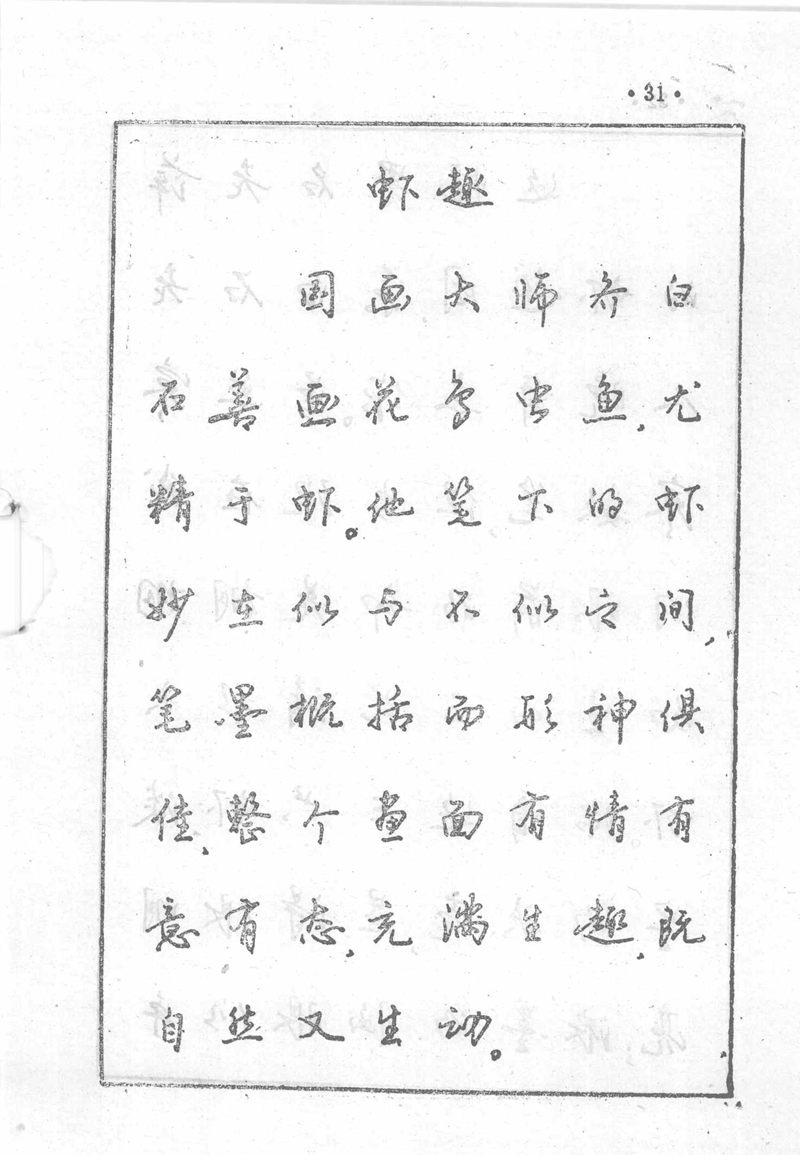 ·31·
虾趣
国画大师齐白
石善画花鸟虫鱼,尤
精于虾。他笔下的虾
妙在似与不似之间,
笔墨概括而形神俱
佳、整个画面有情有
意有态,充满生趣,既
自然又生动。